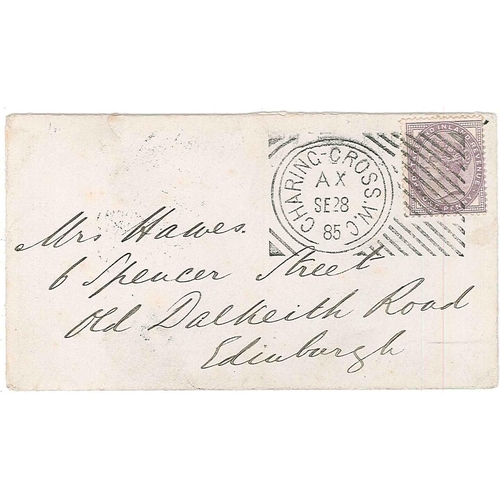 CHARING-CROSS.W.C
AX
SE28
85
Mrs Hawes.
6 Spencer Street
Old Dalkeith Road
Edinburgh